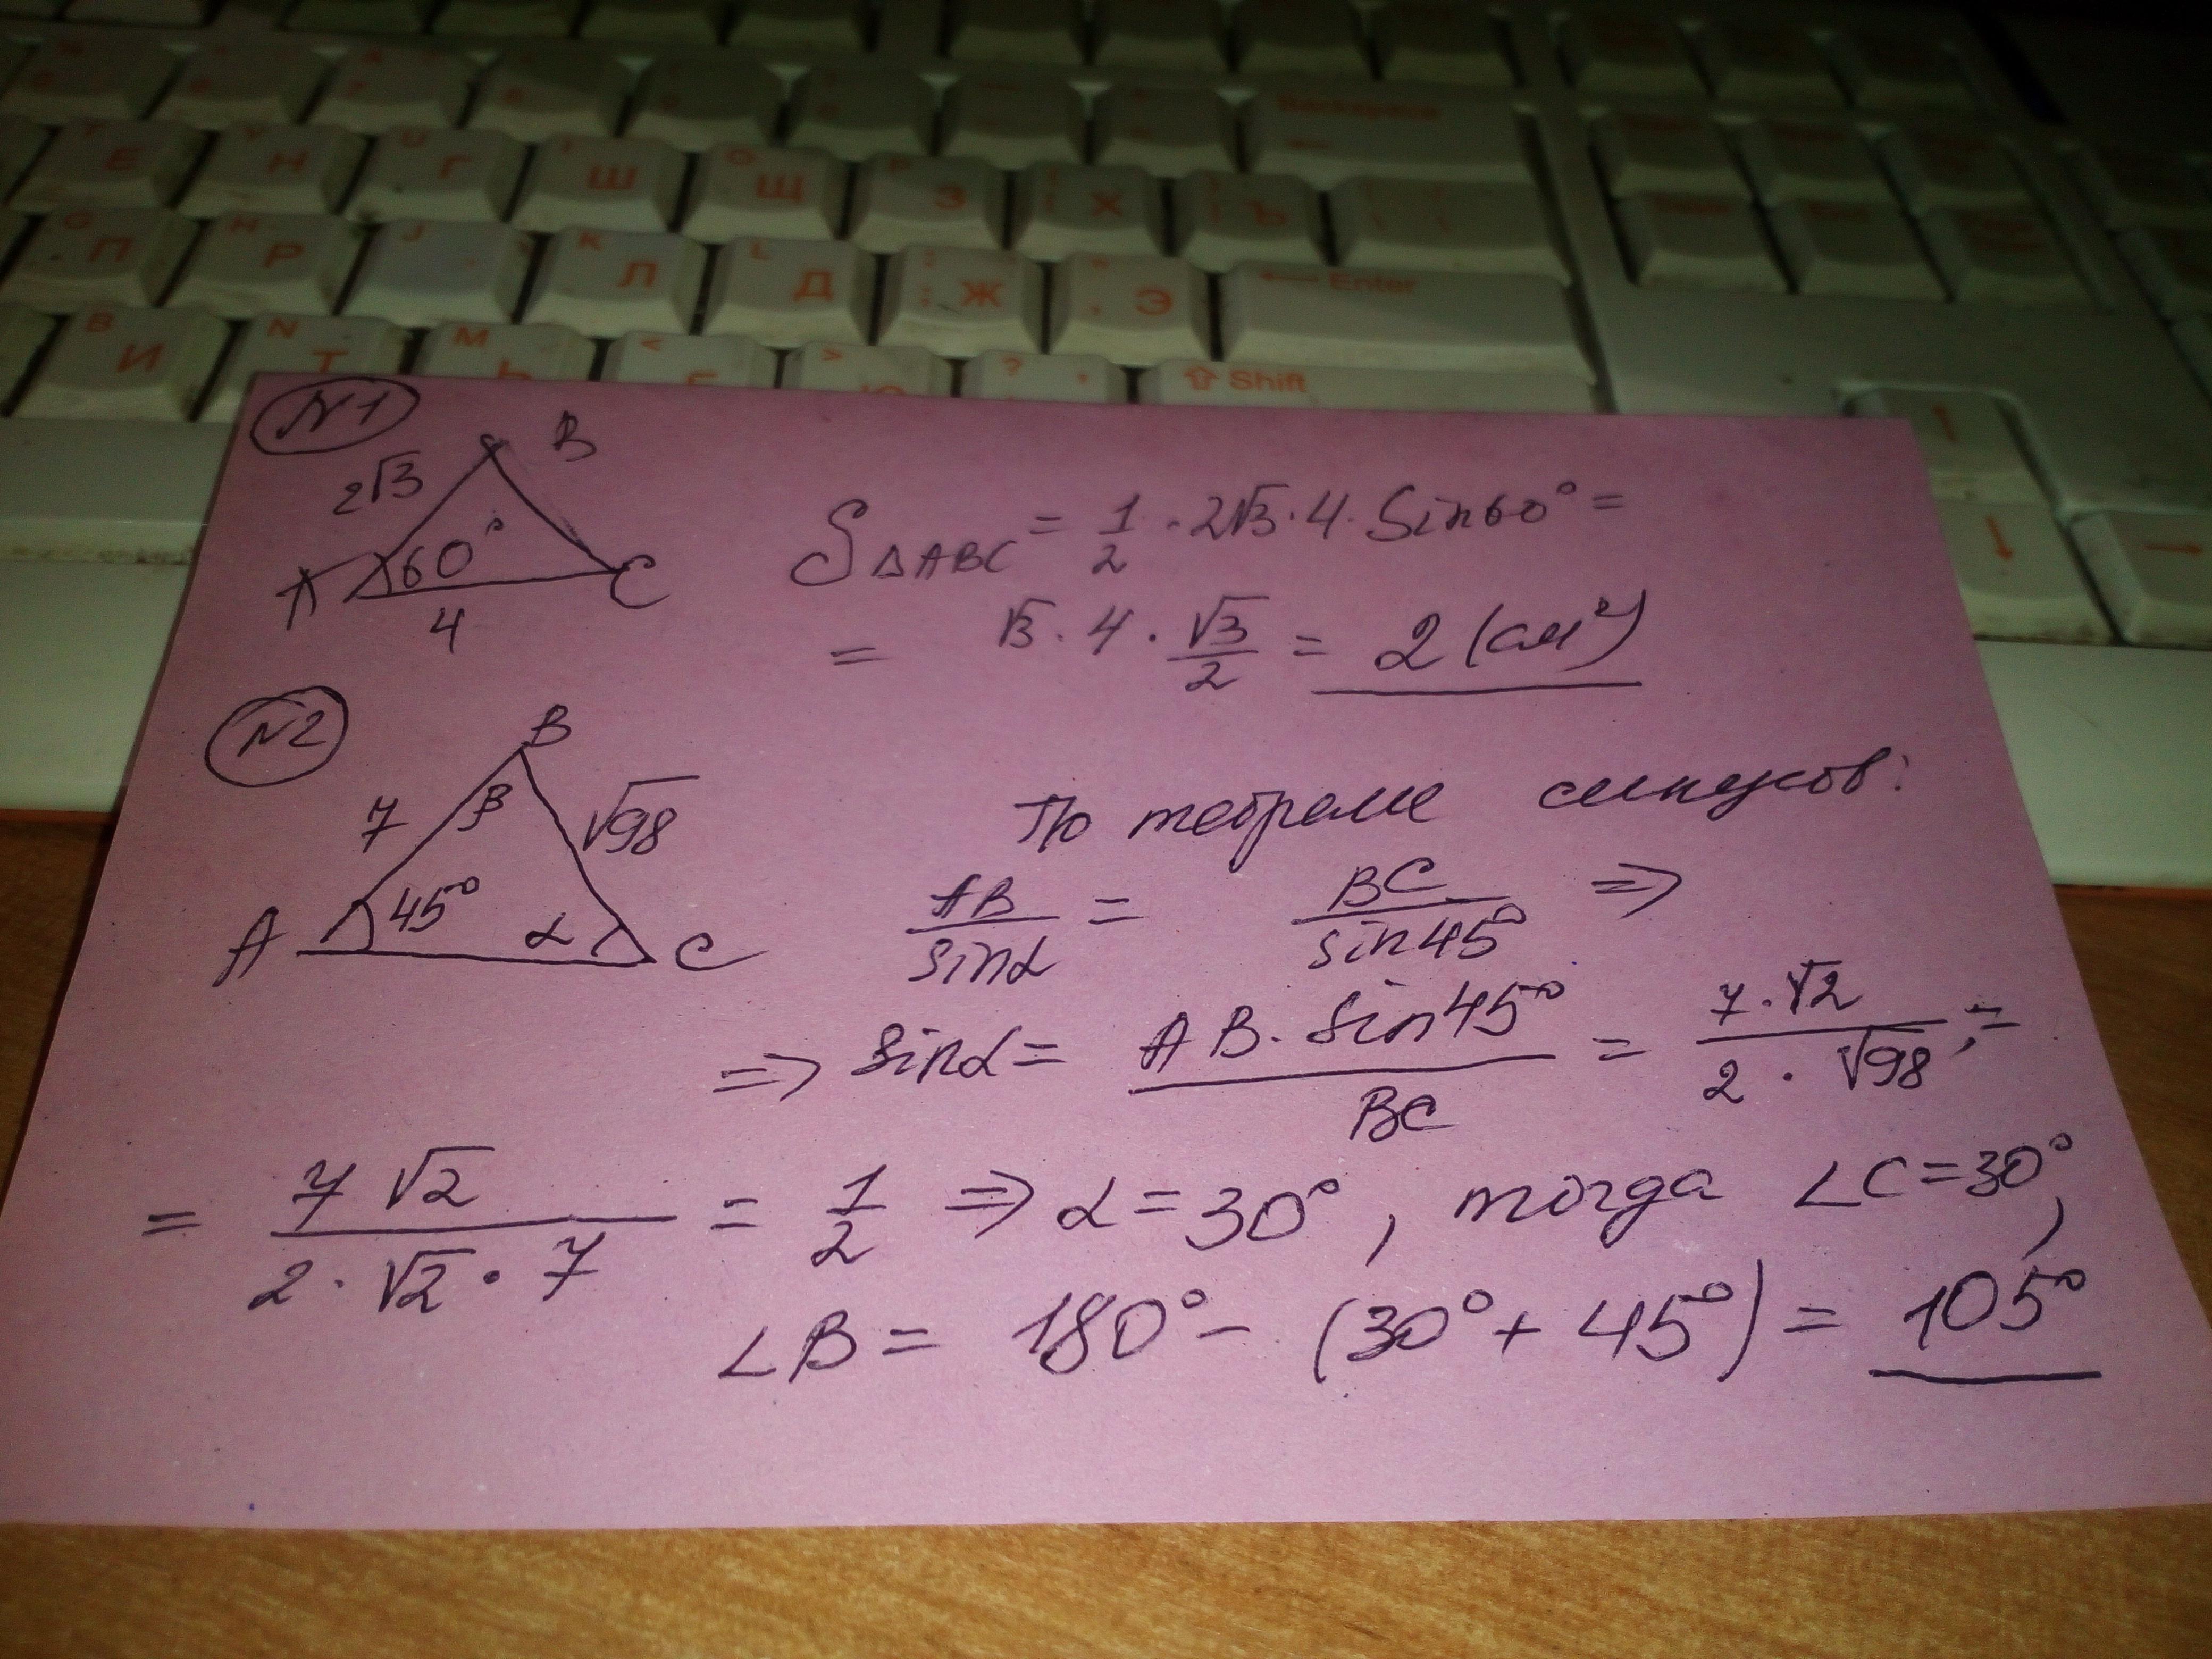 Backspace
T Е Y Н U Г I Ш O Щ P З Х Ъ
G П H Р J K Л L Д ; Ж Э Enter
B И N Т M Ь < > ? , Shift
N1
B
2√3
60°
A C
4
S△ABC = 1/2 · 2√3 · 4 · Sin60° =
= √3 · 4 · √3/2 = 2 (см²)
N2
B
7 β √98
A 45° α C
По теореме синусов:
AB/sinα = BC/sin45° =>
=> sinα = AB · sin45°/BC = 7·√2/2 · √98 ; =
= 7√2/2 · √2 · 7 = 1/2 => α = 30°, тогда ∠C = 30°,
∠B = 180° - (30° + 45°) = 105°